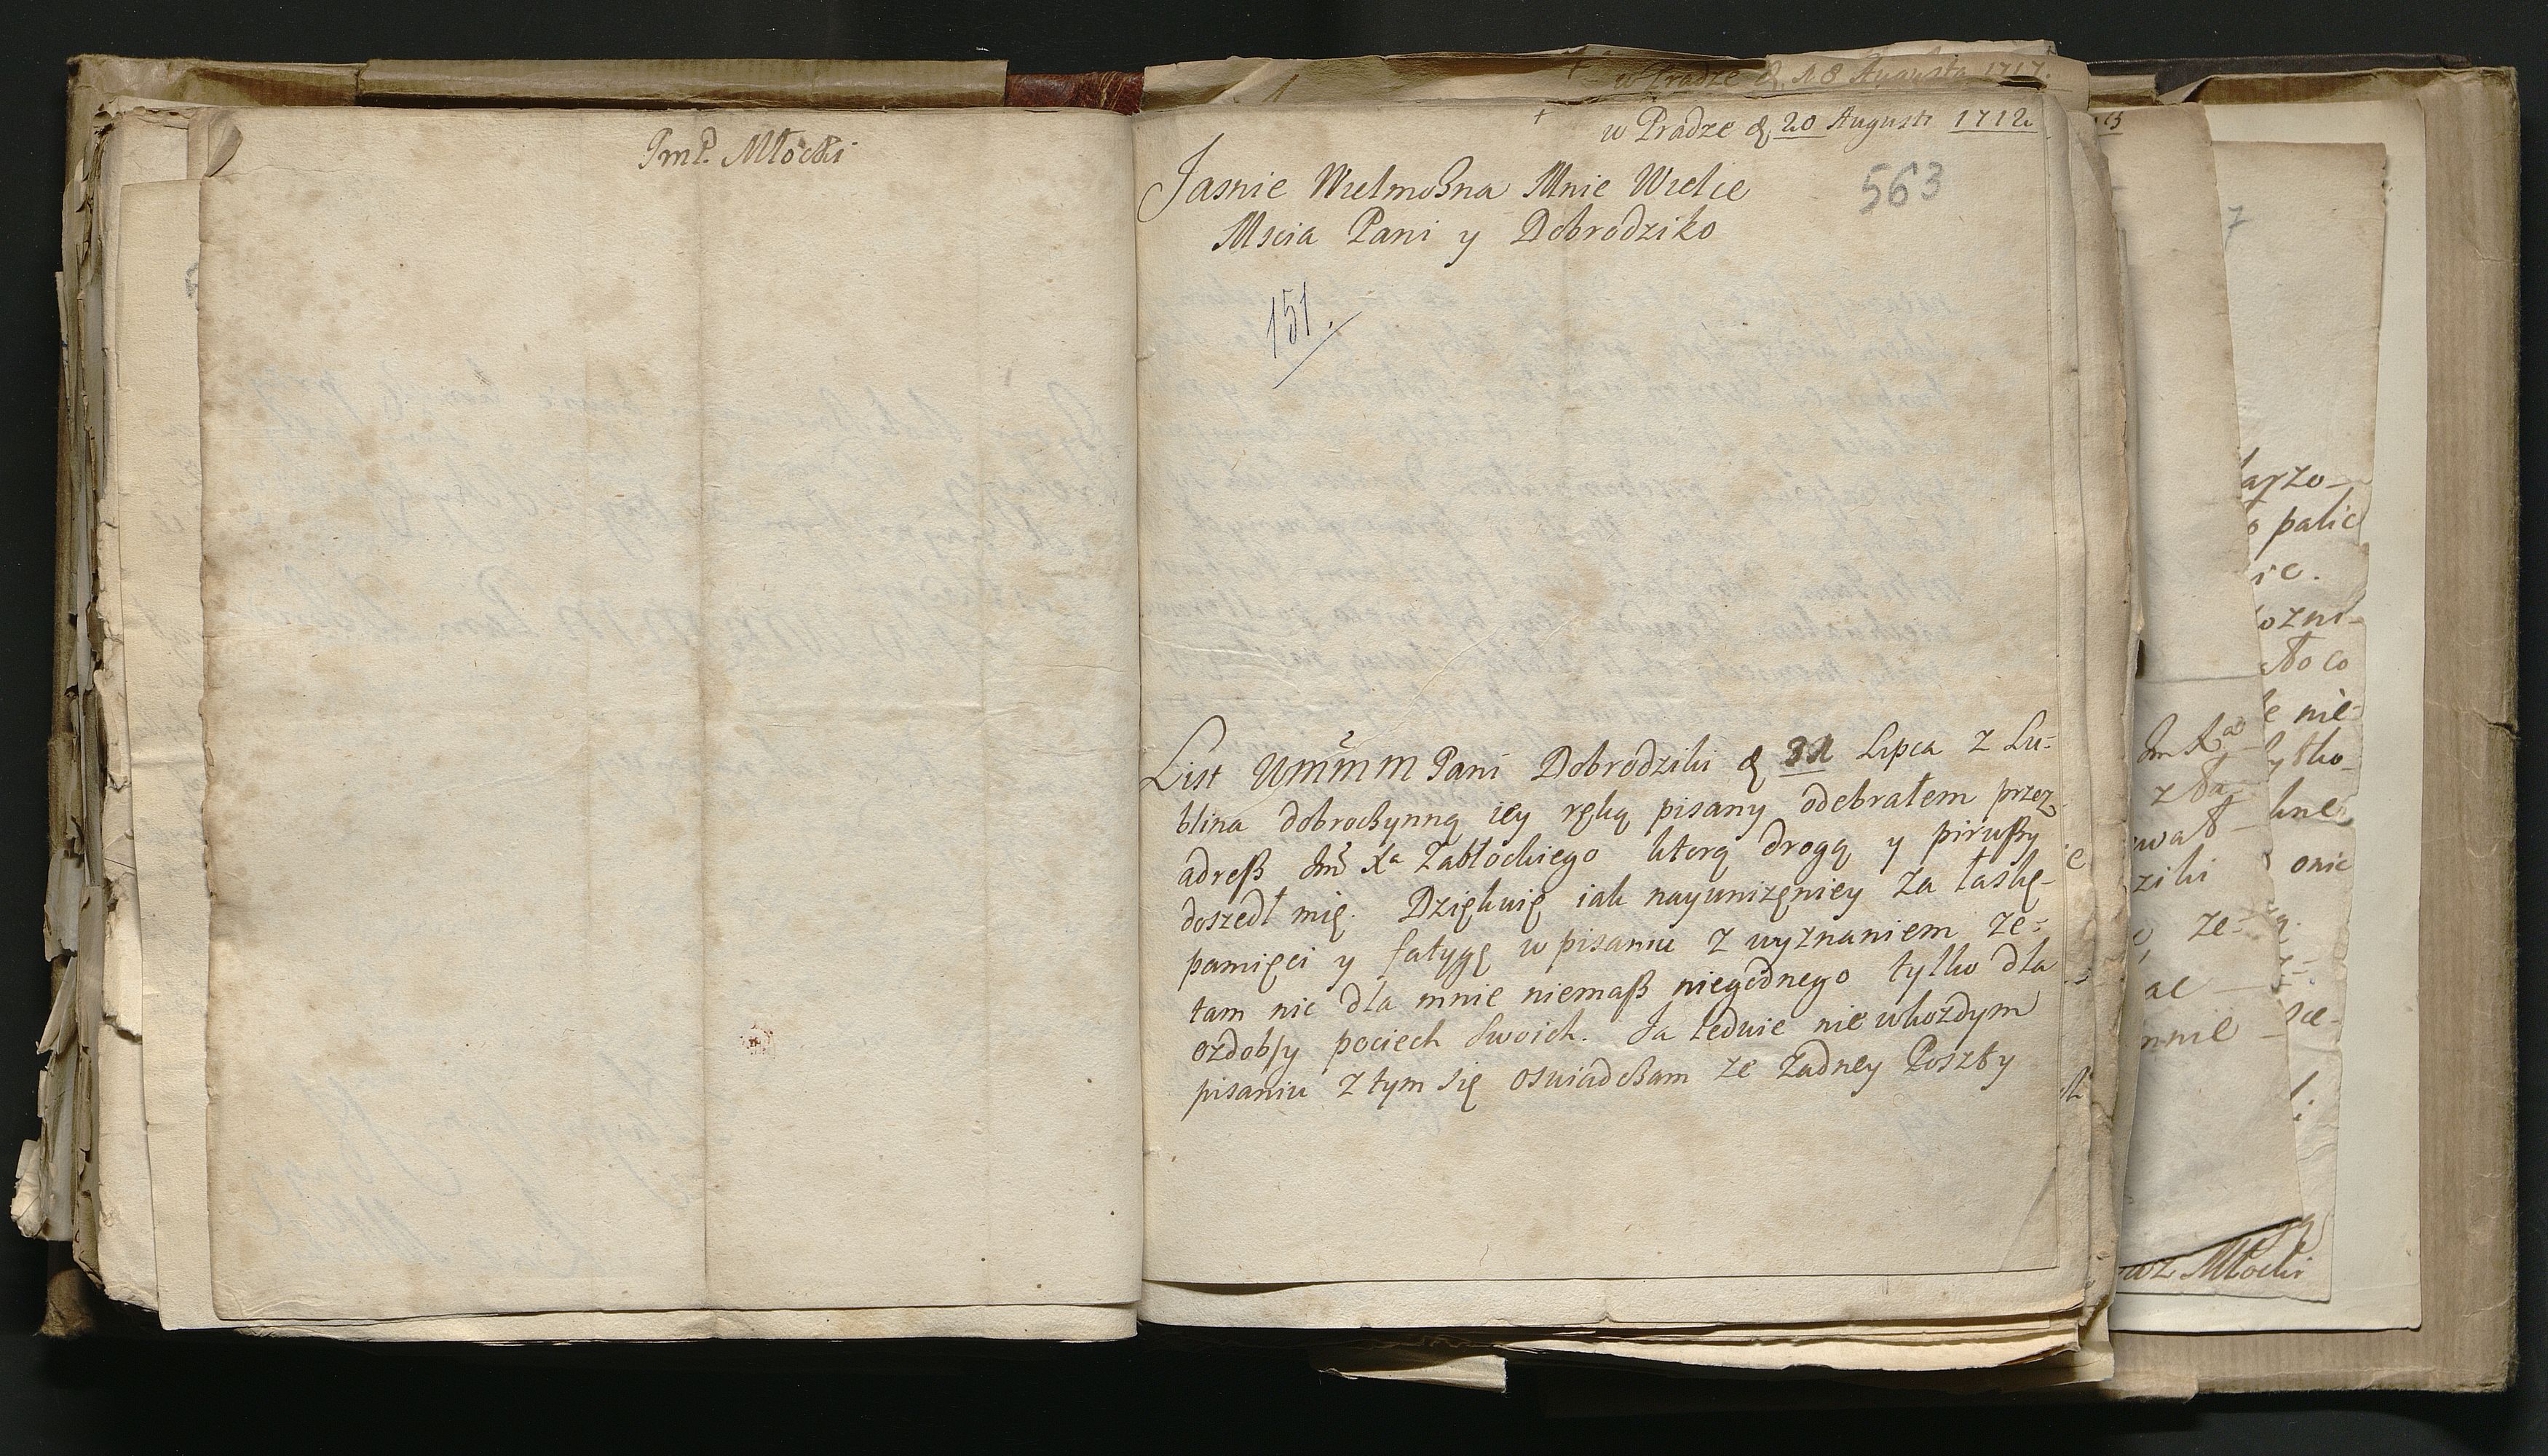 JmP. Młocki
w Pradze d. 18 Augusta 1717.
+
w Pradze d. 20 Augusti 1712
Jasnie Wielmożna Mnie Wielce
563
Mscia Pani y Dobrodziko
151.
List WmMM Pani Dobrodziki d 31 Lipca z Lu-
blina dobroczynną iey ręką pisany odebrałem przez
adress Jm Xa Zabłockiego ktorą drogą y pirwszy
doszedł mię. Dziękuię iak nayuniżeniey za łaskę
pamięci y fatygę w pisaniu z wyznaniem że
tam nic dla mnie niemasz niegodnego tylko dla
ozdoby pociech swoich. Ja ledwie nie wkożdym
pisaniu z tym się oswiadczam że żadney Poszty
arzo-
palic
ozni-
nie-
ytko-
kne
ziki
onic
ze-
mnie
Młocki